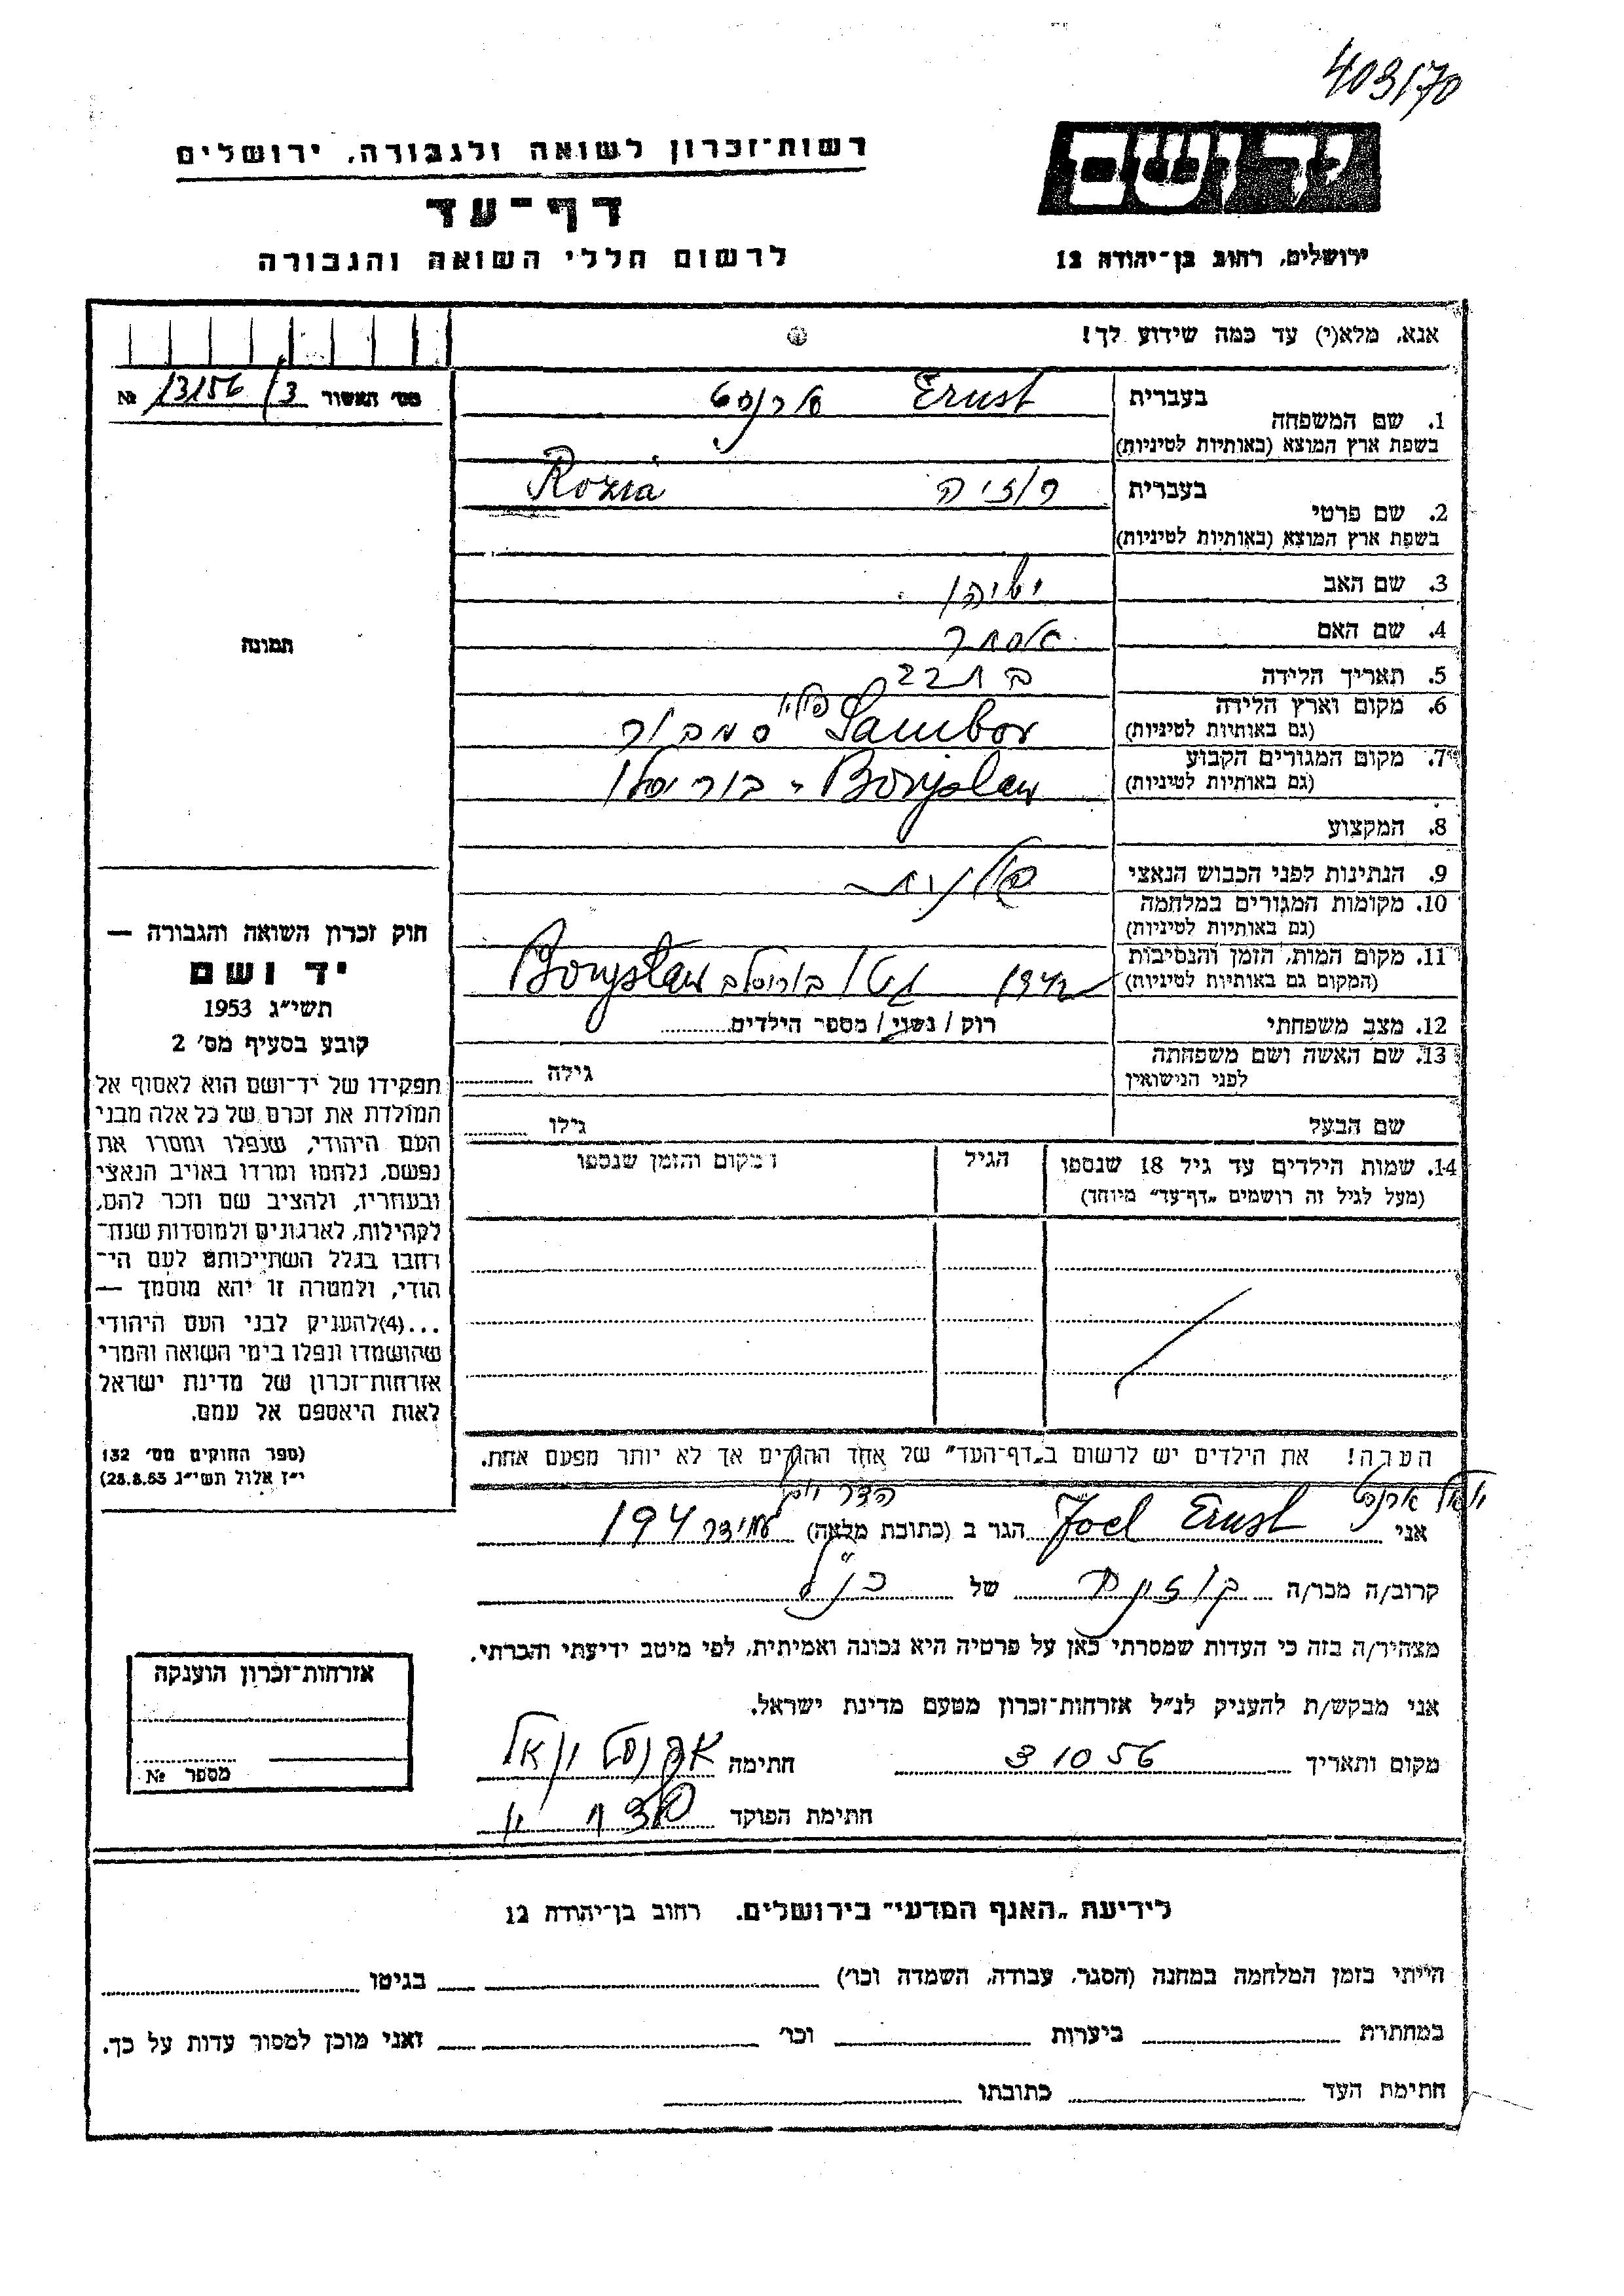 403/70
רשות־זכרון לשואה ולגבורה, ירושלים
דף־עד
לרשום חללי השואה והגבורה
יד ושם
ירושלים, רחוב בן־יהודה 12
אנא, מלא(י) עד כמה שידוע לך!
מס׳ האשור 13156/3 №
תמונה
בעברית
1. שם המשפחה
Ernst ארנסט
בשפת ארץ המוצא (באותיות לטיניות)
בעברית
2. שם פרטי
רוזיה Rozia
בשפת ארץ המוצא (באותיות לטיניות)
3. שם האב
4. שם האם אסתר
5. תאריך הלידה 22
6. מקום וארץ הלידה
(גם באותיות לטיניות)
Sambor סמבור פולין
7. מקום המגורים הקבוע
(גם באותיות לטיניות)
Boryslaw - בוריסלו
8. המקצוע
9. הנתינות לפני הכבוש הנאצי פולנית
10. מקומות המגורים במלחמה
(גם באותיות לטיניות)
11. מקום המות, הזמן והנסיבות
(המקום גם באותיות לטיניות)
1942 גטו בוריסלב Boryslaw
12. מצב משפחתי רוק / נשוי / מספר הילדים
13. שם האשה ושם משפחתה
לפני הנישואין
גילה
שם הבעל גילו
14. שמות הילדים עד גיל 18 שנספו
(מעל לגיל זה רושמים „דף־עד” מיוחד)
הגיל
המקום והזמן שנספו
חוק זכרון השואה והגבורה —
יד ושם
תשי״ג 1953
קובע בסעיף מס׳ 2
תפקידו של יד־ושם הוא לאסוף אל
המולדת את זכרם של כל אלה מבני
העם היהודי, שנפלו ומסרו את
נפשם, נלחמו ומרדו באויב הנאצי
ובעוזריו, ולהציב שם וזכר להם,
לקהילות, לארגונים ולמוסדות שנח־
רחבו בגלל השתייכותם לעם הי־
הודי, ולמטרה זו יהא מוסמך —
...(4)להעניק לבני העם היהודי
שהושמדו ונפלו בימי השואה והמרי
אזרחות־זכרון של מדינת ישראל
לאות היאספם אל עמם.
(ספר החוקים מס׳ 132
י״ז אלול תשי״ג 28.8.53)
הערה! את הילדים יש לרשום ב„דף־העד” של אחד ההורים אך לא יותר מפעם אחת.
יואל ארנסט
אני Joel Ernst הגר ב (כתובת מלאה) עמידר 194
קרוב/ה מכר/ה של הנ״ל
מצהיר/ה בזה כי העדות שמסרתי כאן על פרטיה היא נכונה ואמיתית, לפי מיטב ידיעתי והכרתי.
אני מבקש/ת להעניק לנ״ל אזרחות־זכרון מטעם מדינת ישראל.
מקום ותאריך 3 10 56 חתימה ארנסט יואל
חתימת הפוקד
אזרחות־זכרון הוענקה
מספר №
לידיעת „האגף המדעי” בירושלים. רחוב בן־יהודה 12
הייתי בזמן המלחמה במחנה (הסגר, עבודה, השמדה וכו׳) בגיטו
במחתרת ביערות וכו׳ ואני מוכן למסור עדות על כך.
חתימת העד כתובתו